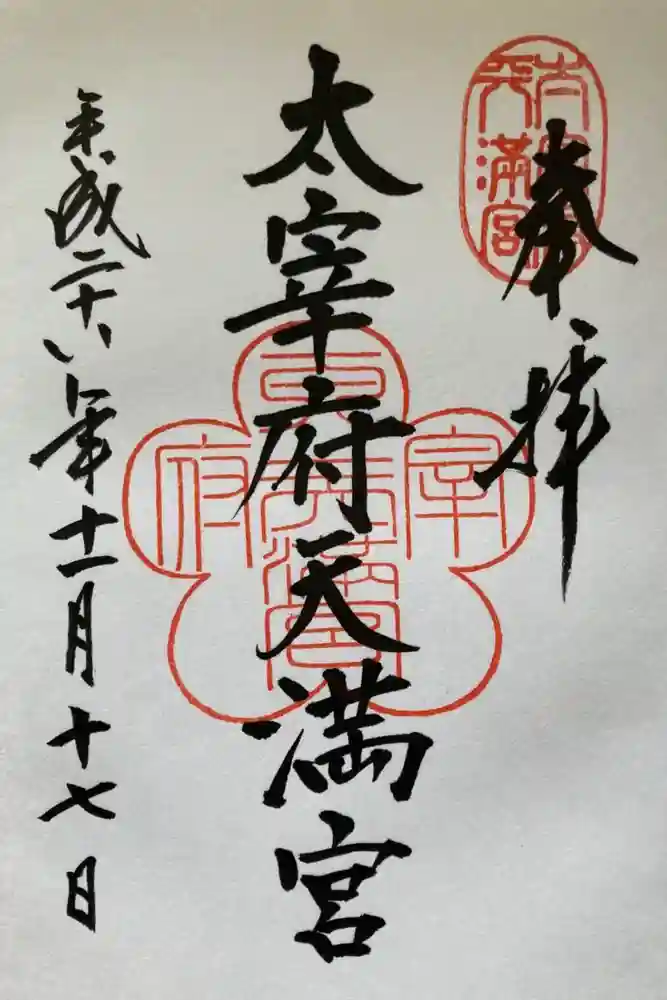 奉拝
太宰府天満宮
平成二十八年十一月十七日
太宰府
天滿宮
太
宰
府
天滿宮